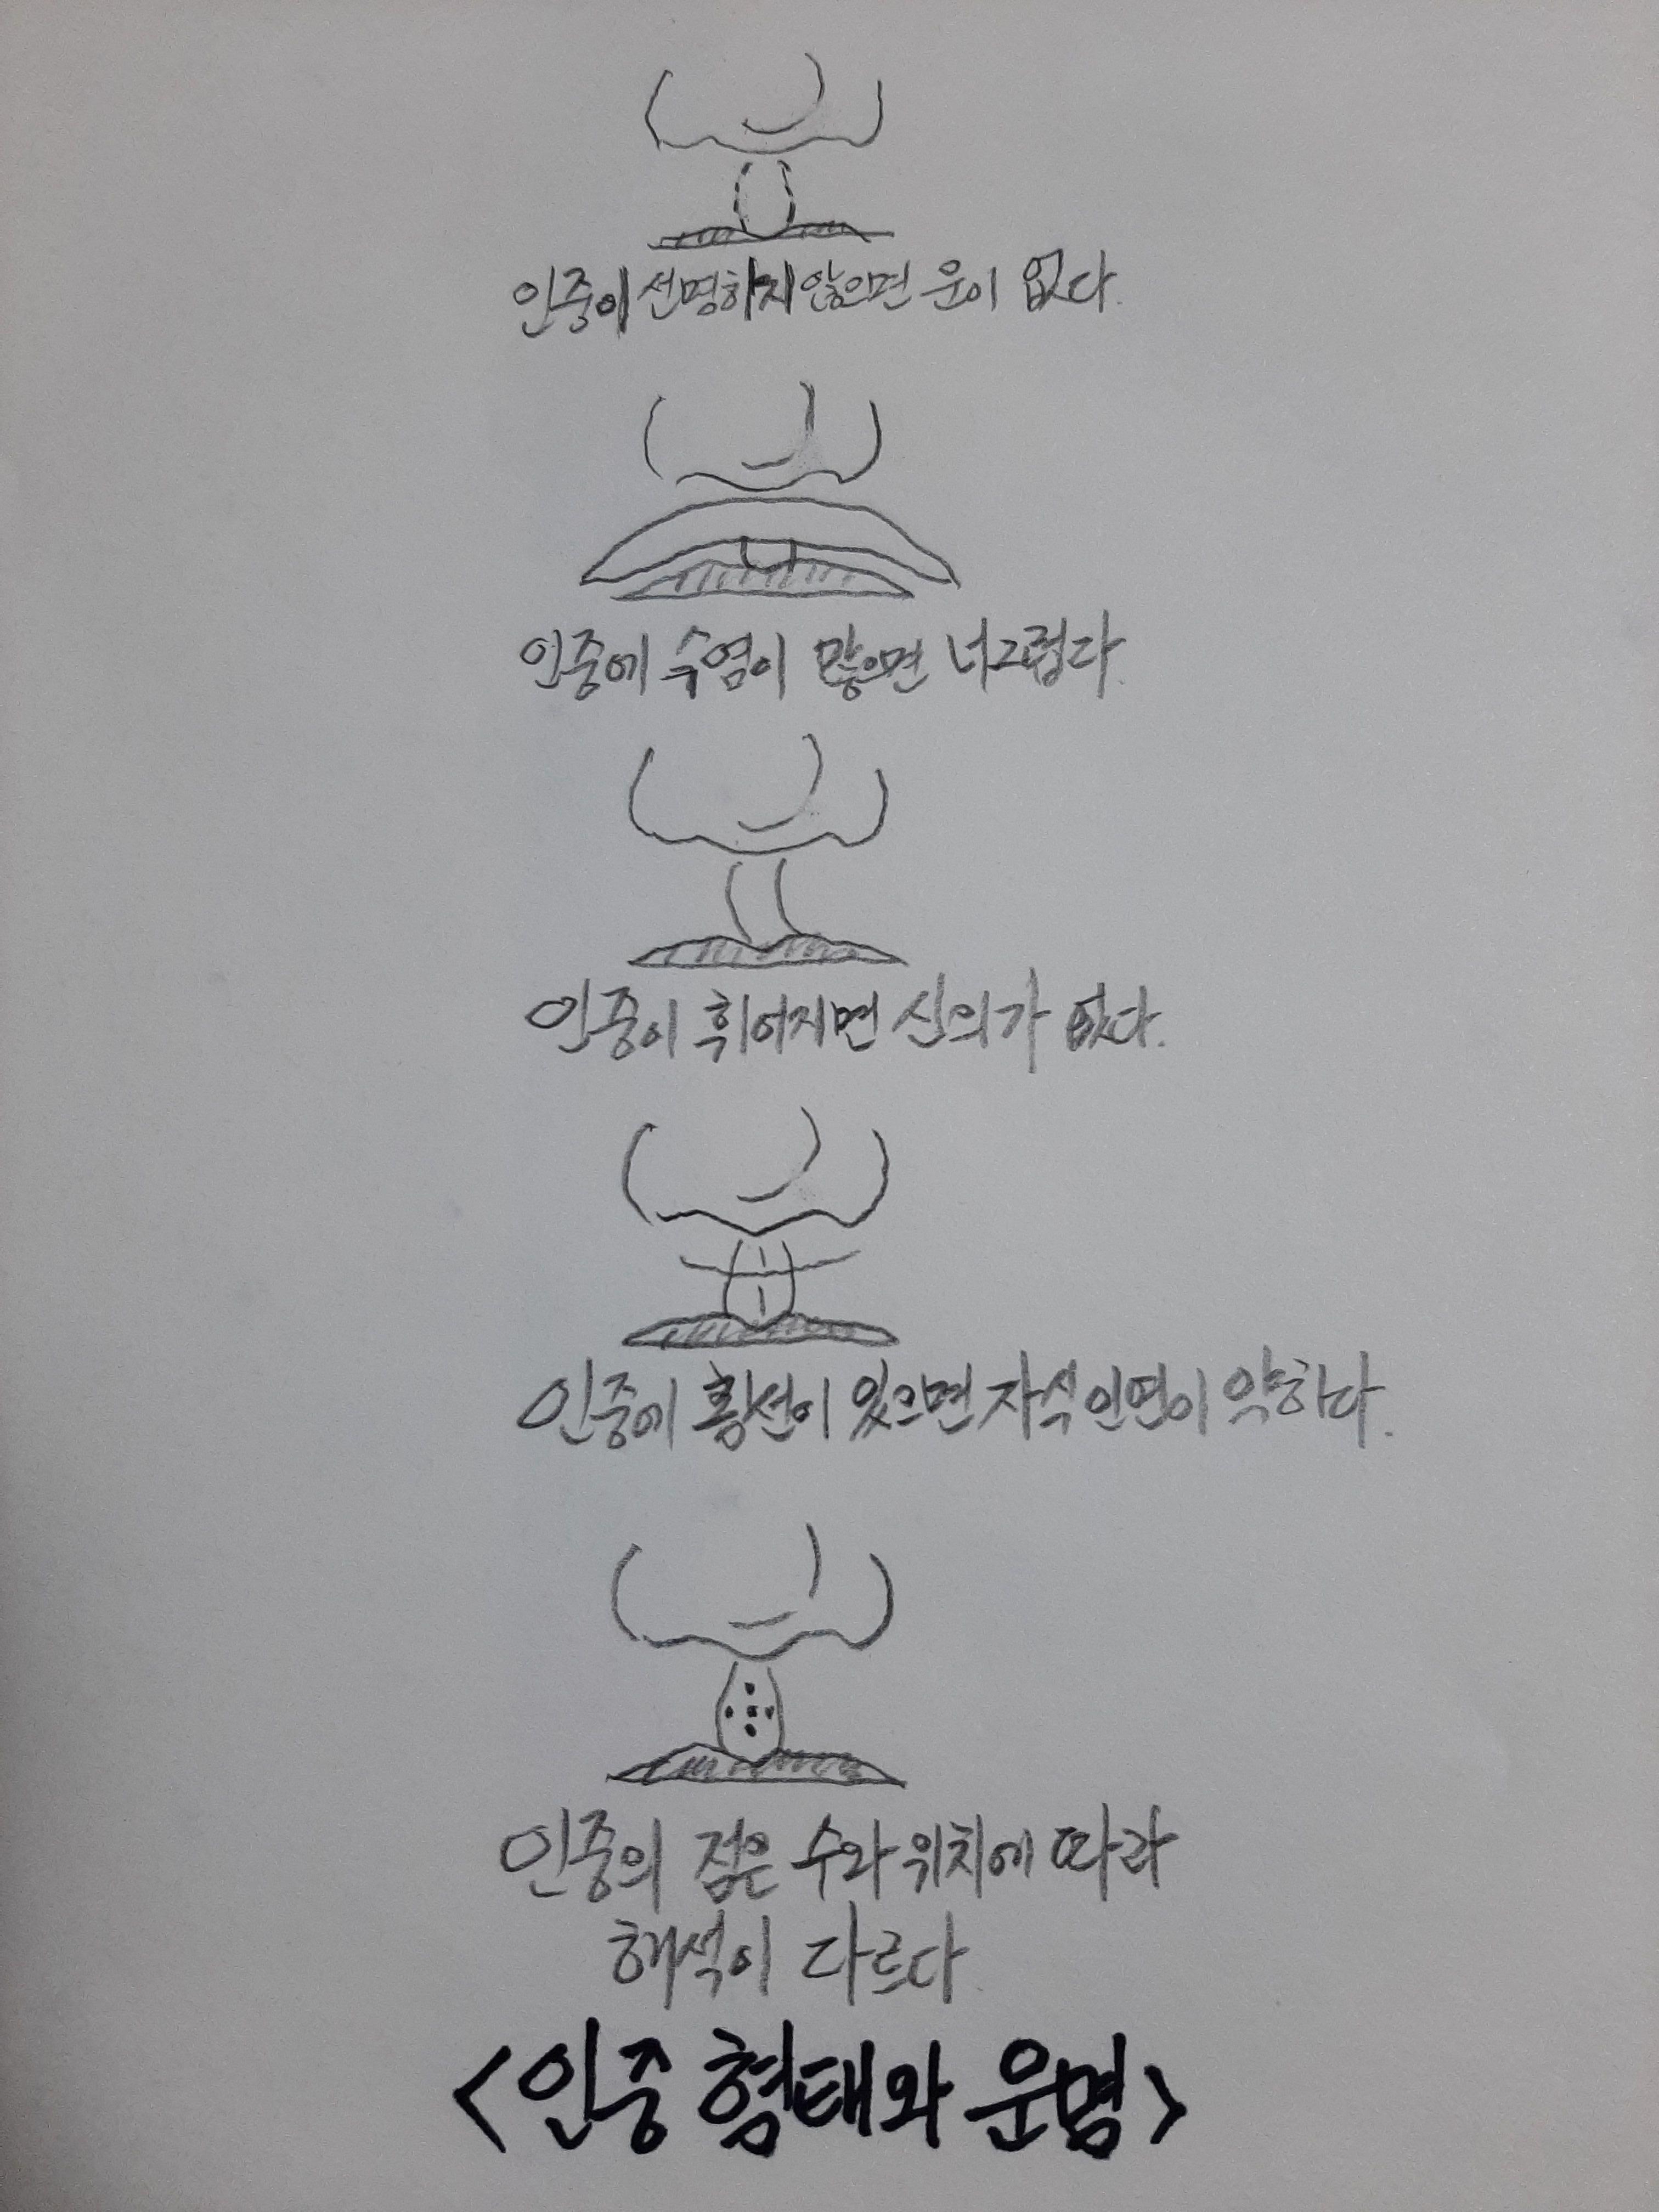 인중이 선명하지 않으면 운이 없다.
인중에 수염이 많으면 너그럽다.
인중이 휘어지면 신의가 없다.
인중에 횡선이 있으면 자식 인연이 약하다.
인중의 점은 수와 위치에 따라
해석이 다르다
<인중 형태와 운명>